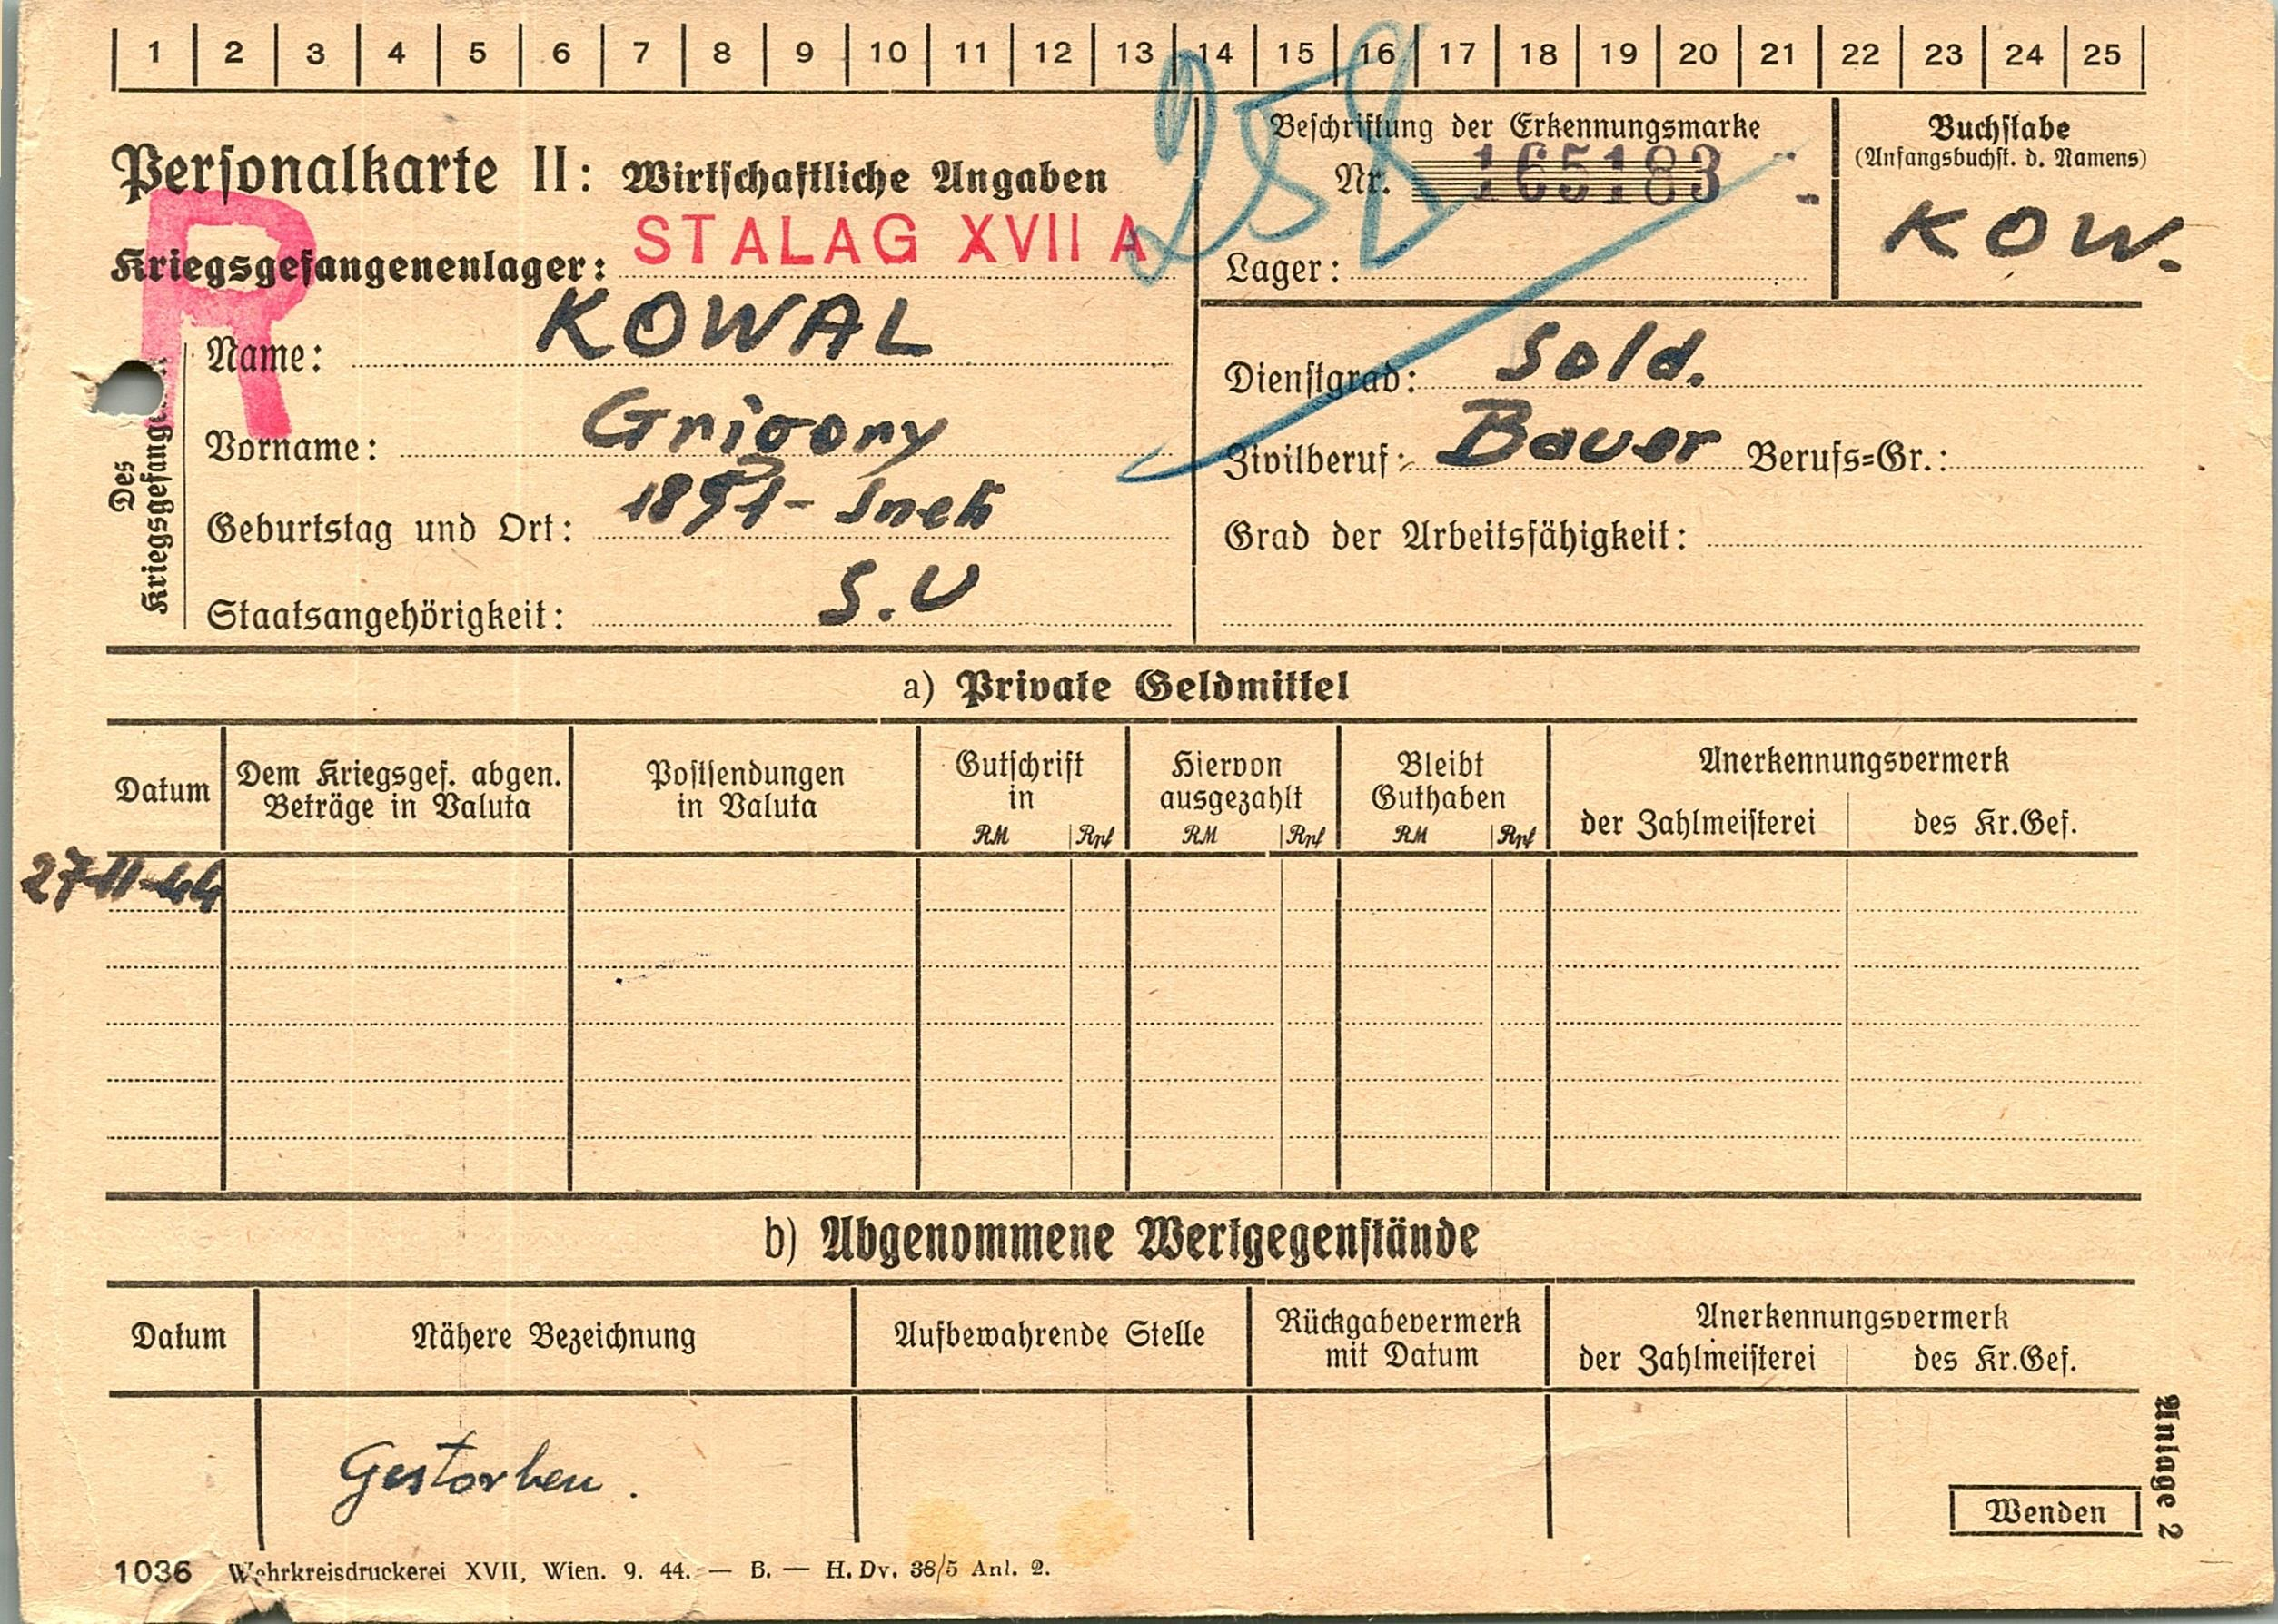 1 2 3 4 5 6 7 8 9 10 11 12 13 14 15 16 17 18 19 20 21 22 23 24 25
258
Personalkarte II: Wirtschaftliche Angaben
R
Kriegsgefangenenlager: STALAG XVII A
Beschriftung der Erkennungsmarke
Nr. 165183
Lager:
Buchstabe
(Anfangsbuchst. d. Namens)
KOW.
Des
Kriegsgefang
Name: KOWAL
Vorname: Grigory
Geburtstag und Ort:
Staatsangehörigkeit: S.U
Dienstgrad: Sold.
Zivilberuf: Bauer Berufs=Gr.:
Grad der Arbeitsfähigkeit:
a) Private Geldmittel
Datum
Dem Kriegsgef. abgen.
Beträge in Valuta
Postsendungen
in Valuta
Gutschrift
in
RM Rpf
Hiervon
ausgezahlt
RM Rpf
Bleibt
Guthaben
RM Rpf
Anerkennungsvermerk
der Zahlmeisterei des Kr.Gef.
27-11-44
b) Abgenommene Wertgegenstände
Datum
Nähere Bezeichnung
Aufbewahrende Stelle
Rückgabevermerk
mit Datum
Anerkennungsvermerk
der Zahlmeisterei des Kr.Gef.
Gestorben.
Wenden
Anlage 2
1036 Wehrkreisdruckerei XVII, Wien. 9. 44. — B. — H. Dv. 38/5 Anl. 2.